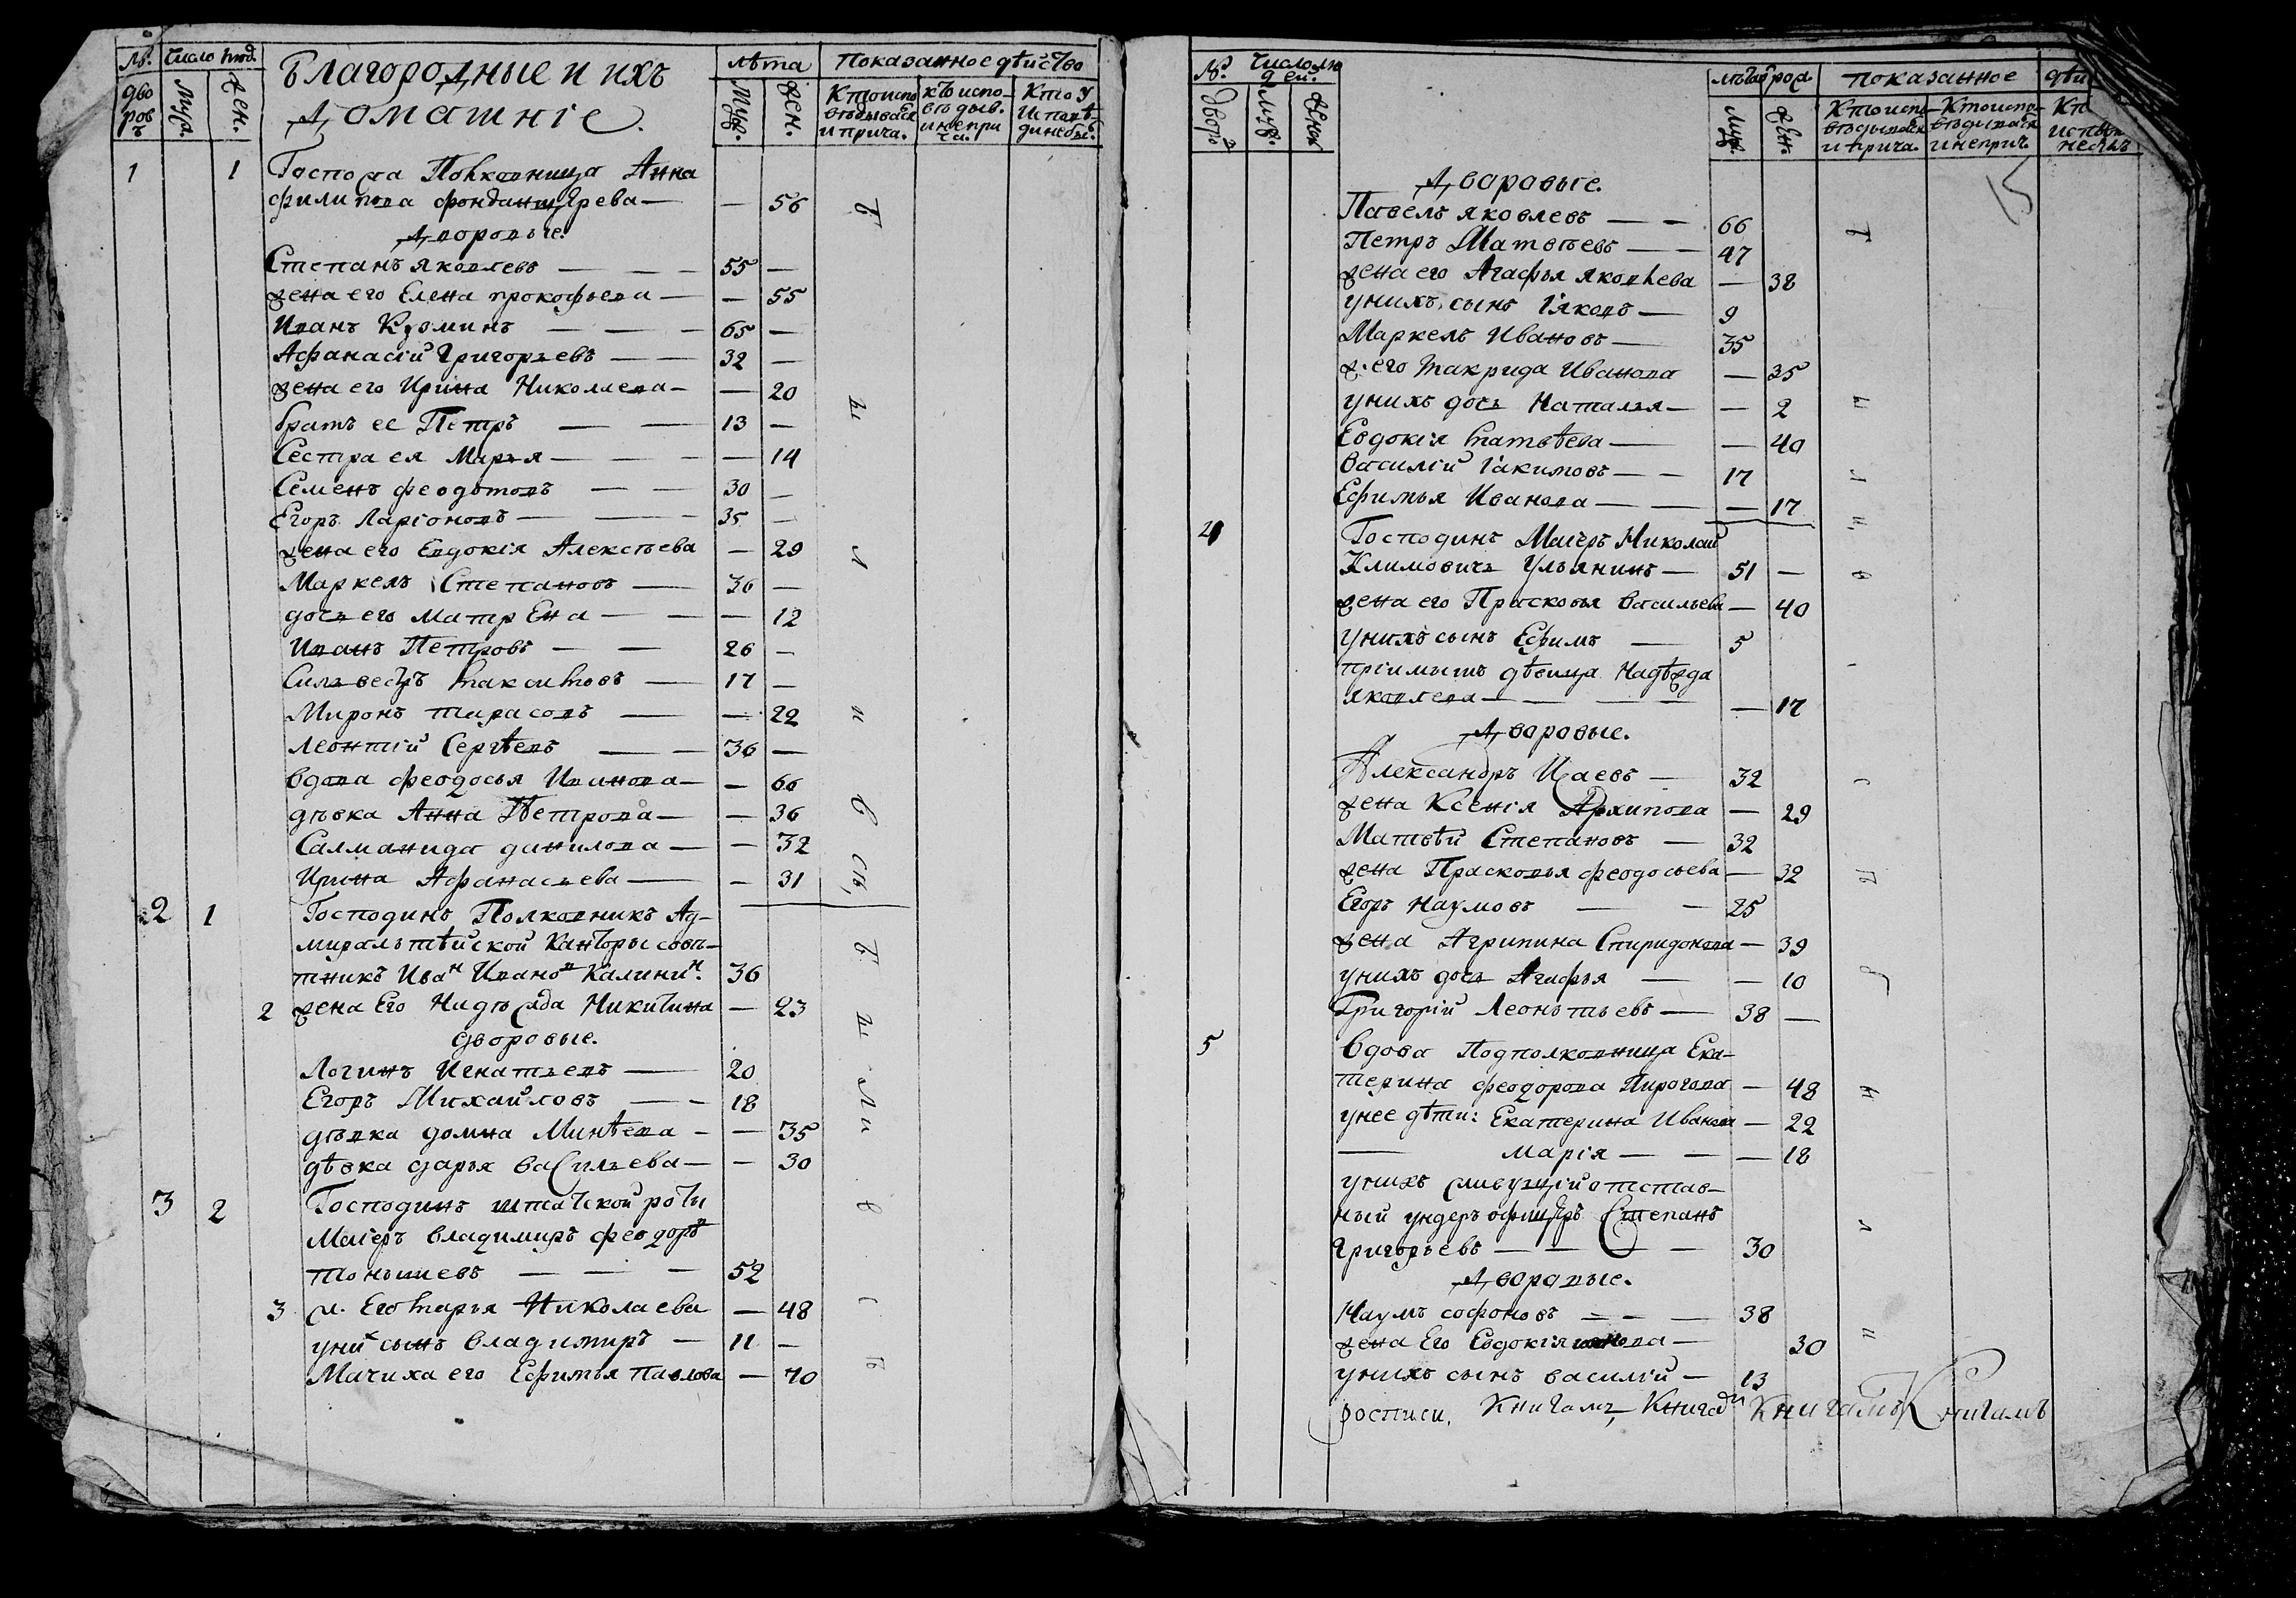 №. Число люд. Благородные и ихъ лѣта Показанное дѣйство
дворовъ Муж. жен. Домашніе. Муж. жен. Кто испо- вѣдывался и прича. кто испо- вѣдыв. и непри ча.
1 1 Госпожа Полковница Анна
филипова – 56
Дворовые.
Степанъ яковлевъ 55 –
жена его Елена прокофьева – 55
Иванъ Кузминъ 65 –
Афанасій Григорьевъ 32 –
жена его Ирина Николаева – 20
братъ ее Петръ 13 –
Сестра ея Марья – 14
Семенъ феодотовъ 30 –
Егоръ Ларіоновъ 35 –
жена его Евдокія Алексѣева – 29
Маркелъ Степановъ 36 –
дочь его Матрена – 12
Иванъ Петровъ 26 –
Сильвестръ Максимовъ 17 –
Миронъ тарасовъ – 22
Леонтій Сергѣевъ 36 –
вдова феодосья Иванова – 66
дѣвка Анна Петрова – 36
Салманида данилова – 32
Ирина Афанасьева – 31
2 1 Господинъ Полковникъ Ад-
миралтѣйской Канторы совѣ-
тникъ Иванъ Ивановъ Калининъ. 36
2 жена Его Надѣжда Никитина – 23
дворовые.
Логинъ Игнатьевъ 20
Егоръ Михайловъ 18
дѣвка домна Матвѣева – 35
дѣвка дарья васильева – 30
3 2 Господинъ штатской роты
Маіеръ владимиръ феодоръ
52
3 ж. Его Марья Николаева – 48
уних сынъ владимиръ 11 –
Мачиха его Ефимья павлова – 70
№. Число лю дей. лѣта от род. показанное дѣй
Дворъ муж. женск Муж. жен. Кто испо- вѣдывался и прича. Кто испо- вѣдывался и неприч.
15
Дворовые.
Павелъ яковлевъ 66
Петръ Матвѣевъ 47
жена его Агафья яковлева – 38
унихъ сынъ Іяковъ 9
Маркелъ Ивановъ 35
ж. его Макрида Иванова – 35
унихъ дочь Наталья – 2
Евдокія Матвѣева – 40
василій Іакимовъ 17
Ефимья Иванова – 17
4 Господинъ Маіеръ Николай
Климовичь Ульянинъ 51 –
жена его Прасковья васильева – 40
унихъ сынъ Ефимъ 5
пріимышъ дѣвица Надѣжда
яковлева – 17
Дворовые.
Александръ Исаевъ 32
жена Ксенія Архипова – 29
Матвѣй Степановъ 32
жена Прасковья феодосьева – 32
Егоръ Наумовъ 25
жена Агрипина Спиридонова – 39
унихъ дочь Агафья – 10
Григорій Леонтьевъ 38 –
5 вдова Подполковница Ека-
терина феодорова Пирогова – 48
унее дѣти: Екатерина Иванова – 22
Марія – 18
унихъ живущій отстав-
ный ундеръ офицеръ Степанъ
Григорьевъ 30
Дворовые.
Наумъ софоновъ 38
жена Его Евдокія 30
унихъ сынъ василій 13
росписи, Книгамъ, Книгамъ Книгамъ